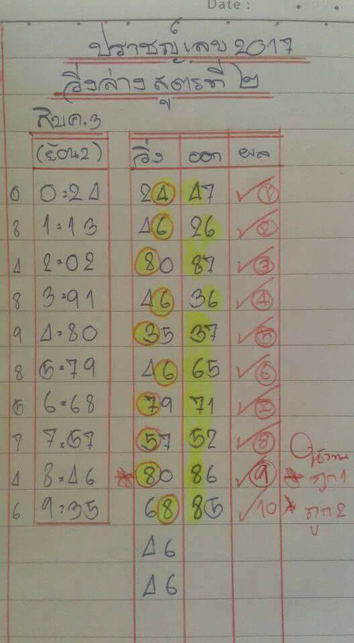 Date :
ปราชญ์เลข 2017
วิ่งล่าง สูตรที่ ๒
สิบ ค.3
(ย้อน2) วิ่ง ออก ผล
0 0=24 24 47 ✓1
8 1=13 46 26 ✓2
4 2=02 80 87 ✓3
8 3=91 46 36 ✓4
9 4=80 35 37 ✓5
8 5=79 46 65 ✓6
5 6=68 79 71 ✓7
7 7=57 57 52 ✓8
4 8=46 80 86 ✓9 ถูก1
6 9=35 68 85 ✓10 ถูก2
46
46